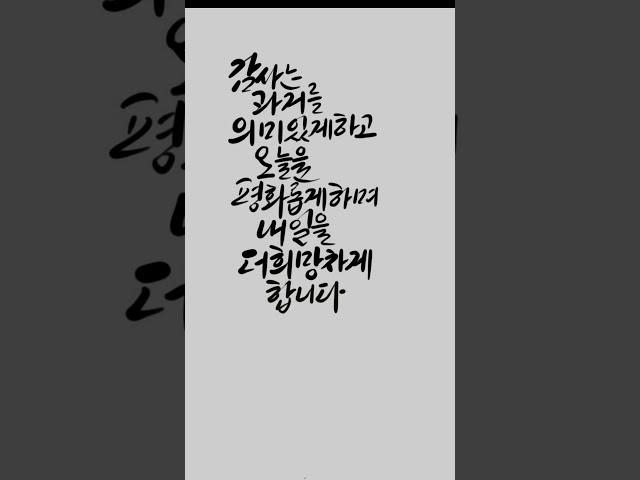 감사는
과거를
의미있게하고
오늘을
평화롭게하며
내일을
더희망차게
합니다